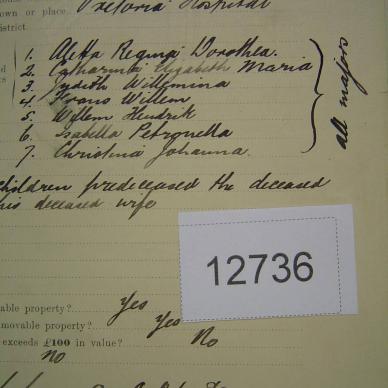 Pretoria Hospital
own or place.
district
1. Aletta Regina Dorothea.
2. Catharina Elizabeth Maria
3. Judith Willemina
4. Frans Willem
5. Willem Hendrik
6. Isabella Petronella
7. Christina Johanna.
all majors
children predeceased the deceased
his deceased wife
12736
able property? Yes
movable property? Yes
exceeds £100 in value? No
No